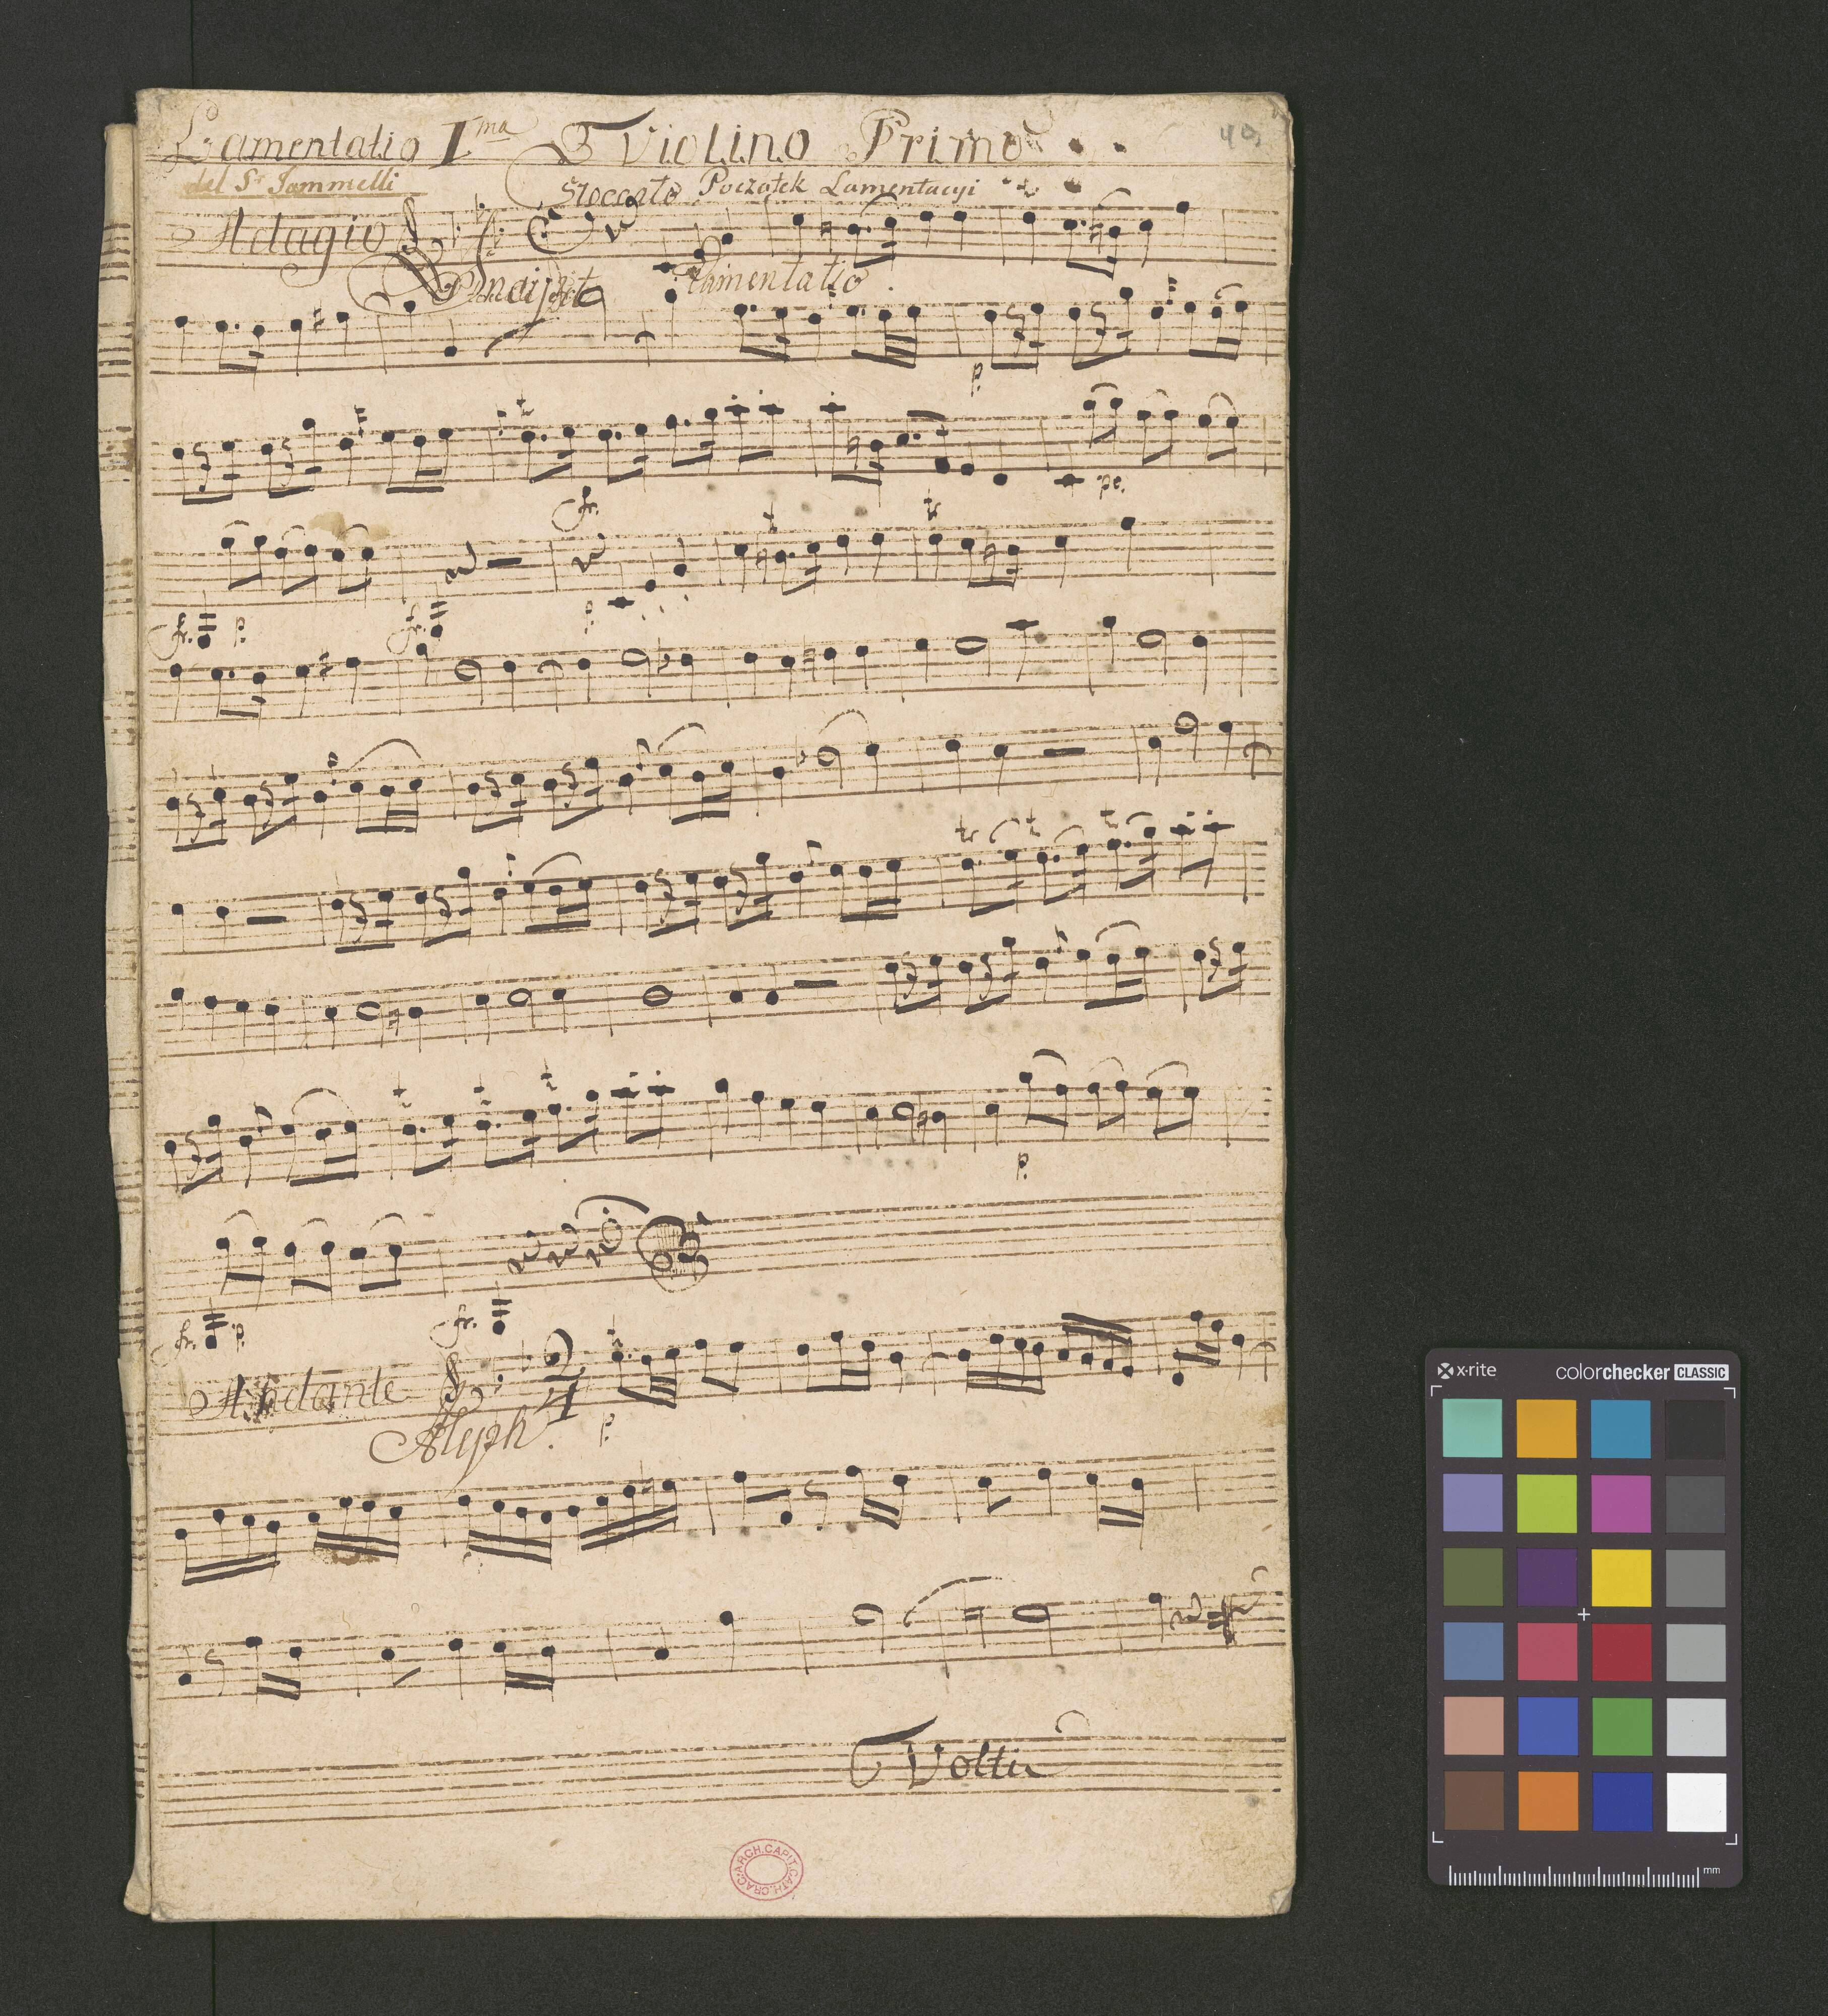 Lamentatio I ma Violino Primo
49
del Sr Jammelli
Stoccato Początek Lamentacyi
Adagio
Lamentatio
p.
fr. po.
fr. p. fr. p.
tr
p.
fr. p. fr.
Andante 2/4
Aleph. p.
Volti
ARCH. CAPIT. CATH. CRAC.
x-rite colorchecker CLASSIC
mm